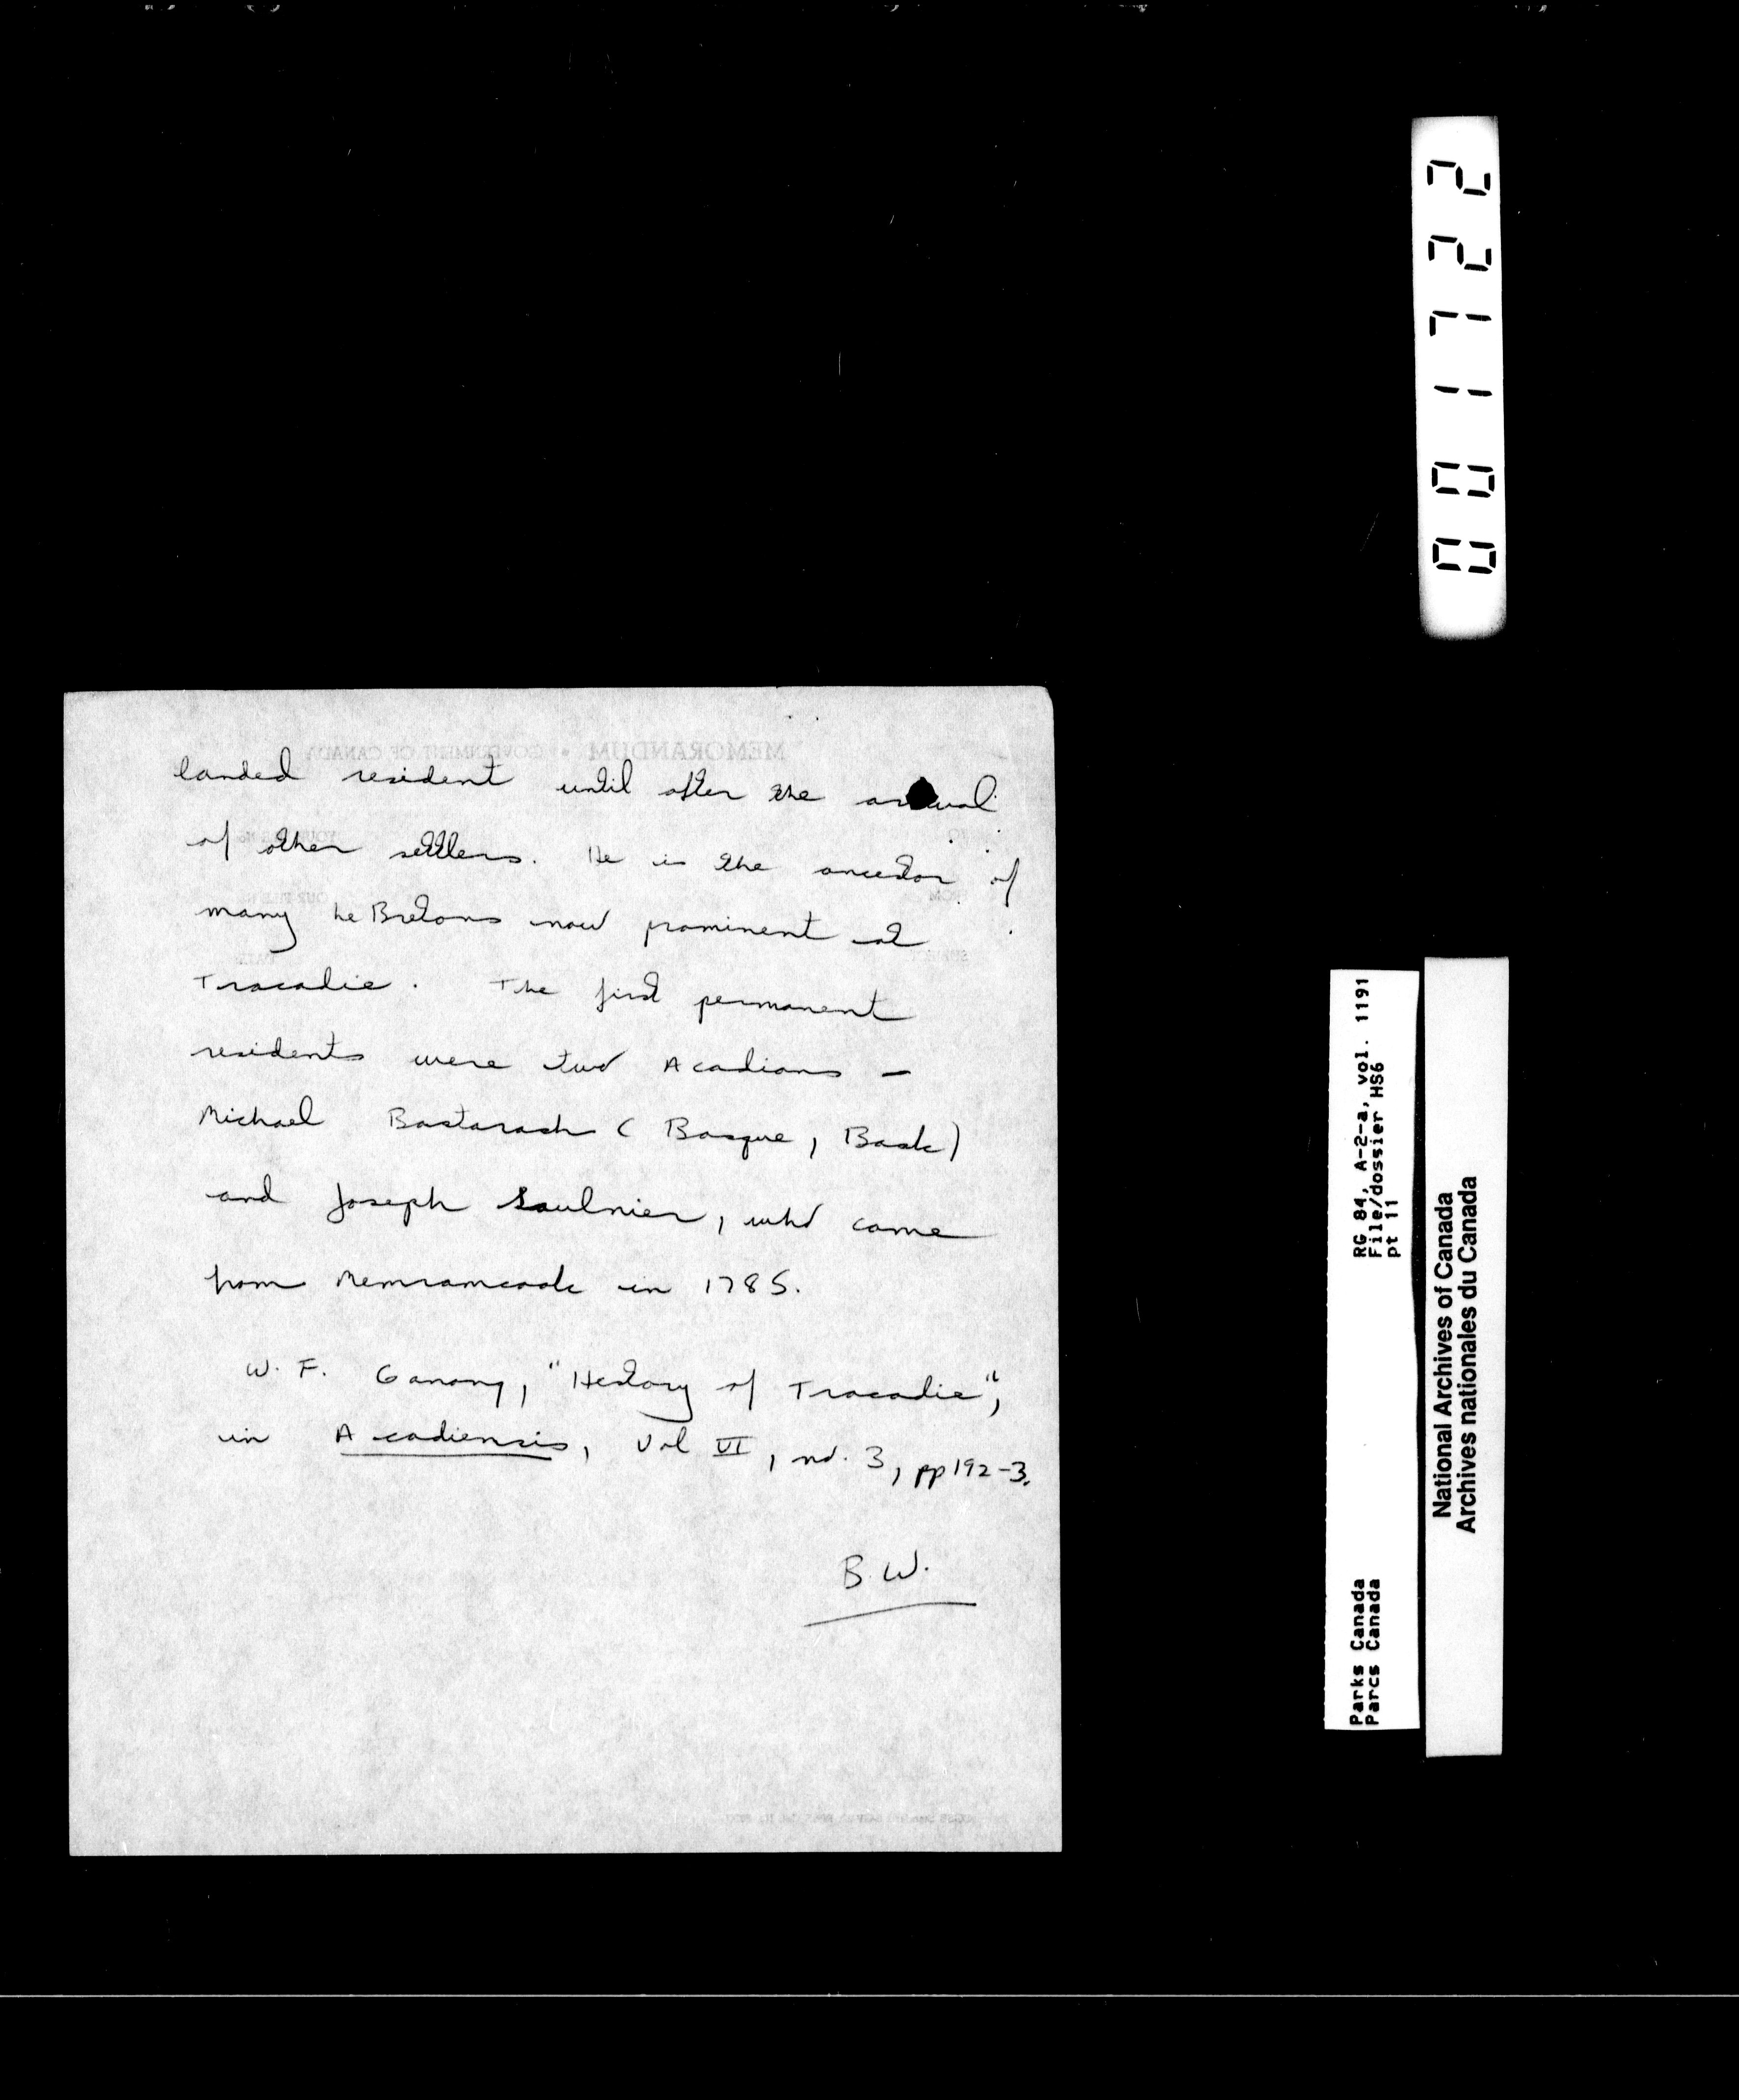 landed resident until after the arrival
of other settlers. He is the ancestor of
many Le Bretons now prominent at
Tracadie. The first permanent
residents were two Acadians -
Michael Bastarash (Basque, Bask)
and Joseph Saulnier, who came
from Memramcook in 1785.
W. F. Ganong, "History of Tracadie",
in Acadiensis, Vol VI, no. 3, pp 192-3.
B.W.
001722
RG 84, A-2-a, vol. 1191
File/dossier HS6
pt 11
Parks Canada
Parcs Canada
National Archives of Canada
Archives nationales du Canada
MEMORANDUM • GOVERNMENT OF CANADA